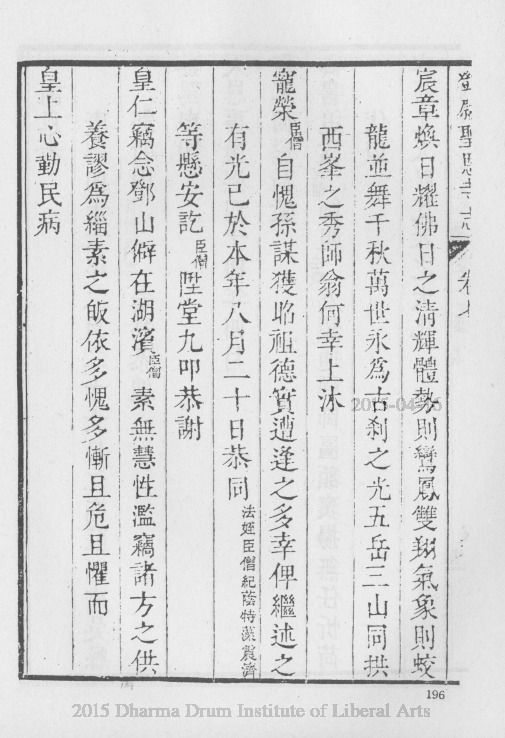 鄧尉聖恩寺志 卷七
宸章煥日耀佛日之清輝體勢則鸞鳳雙翔氣象則蛟
龍並舞千秋萬世永為古刹之光五岳三山同拱
西峯之秀師翁何幸上沐
寵榮臣僧自愧孫謀獲貽祖德實遭逢之多幸俾繼述之
有光已於本年八月二十日恭同法姪臣僧紀蔭特簡霞濟
等懸安訖臣僧陞堂九叩恭謝
皇仁竊念鄧山僻在湖濱臣僧素無慧性濫竊諸方之供
養謬為緇素之皈依多愧多慚且危且懼而
皇上心勤民病
196
2015 Dharma Drum Institute of Liberal Arts